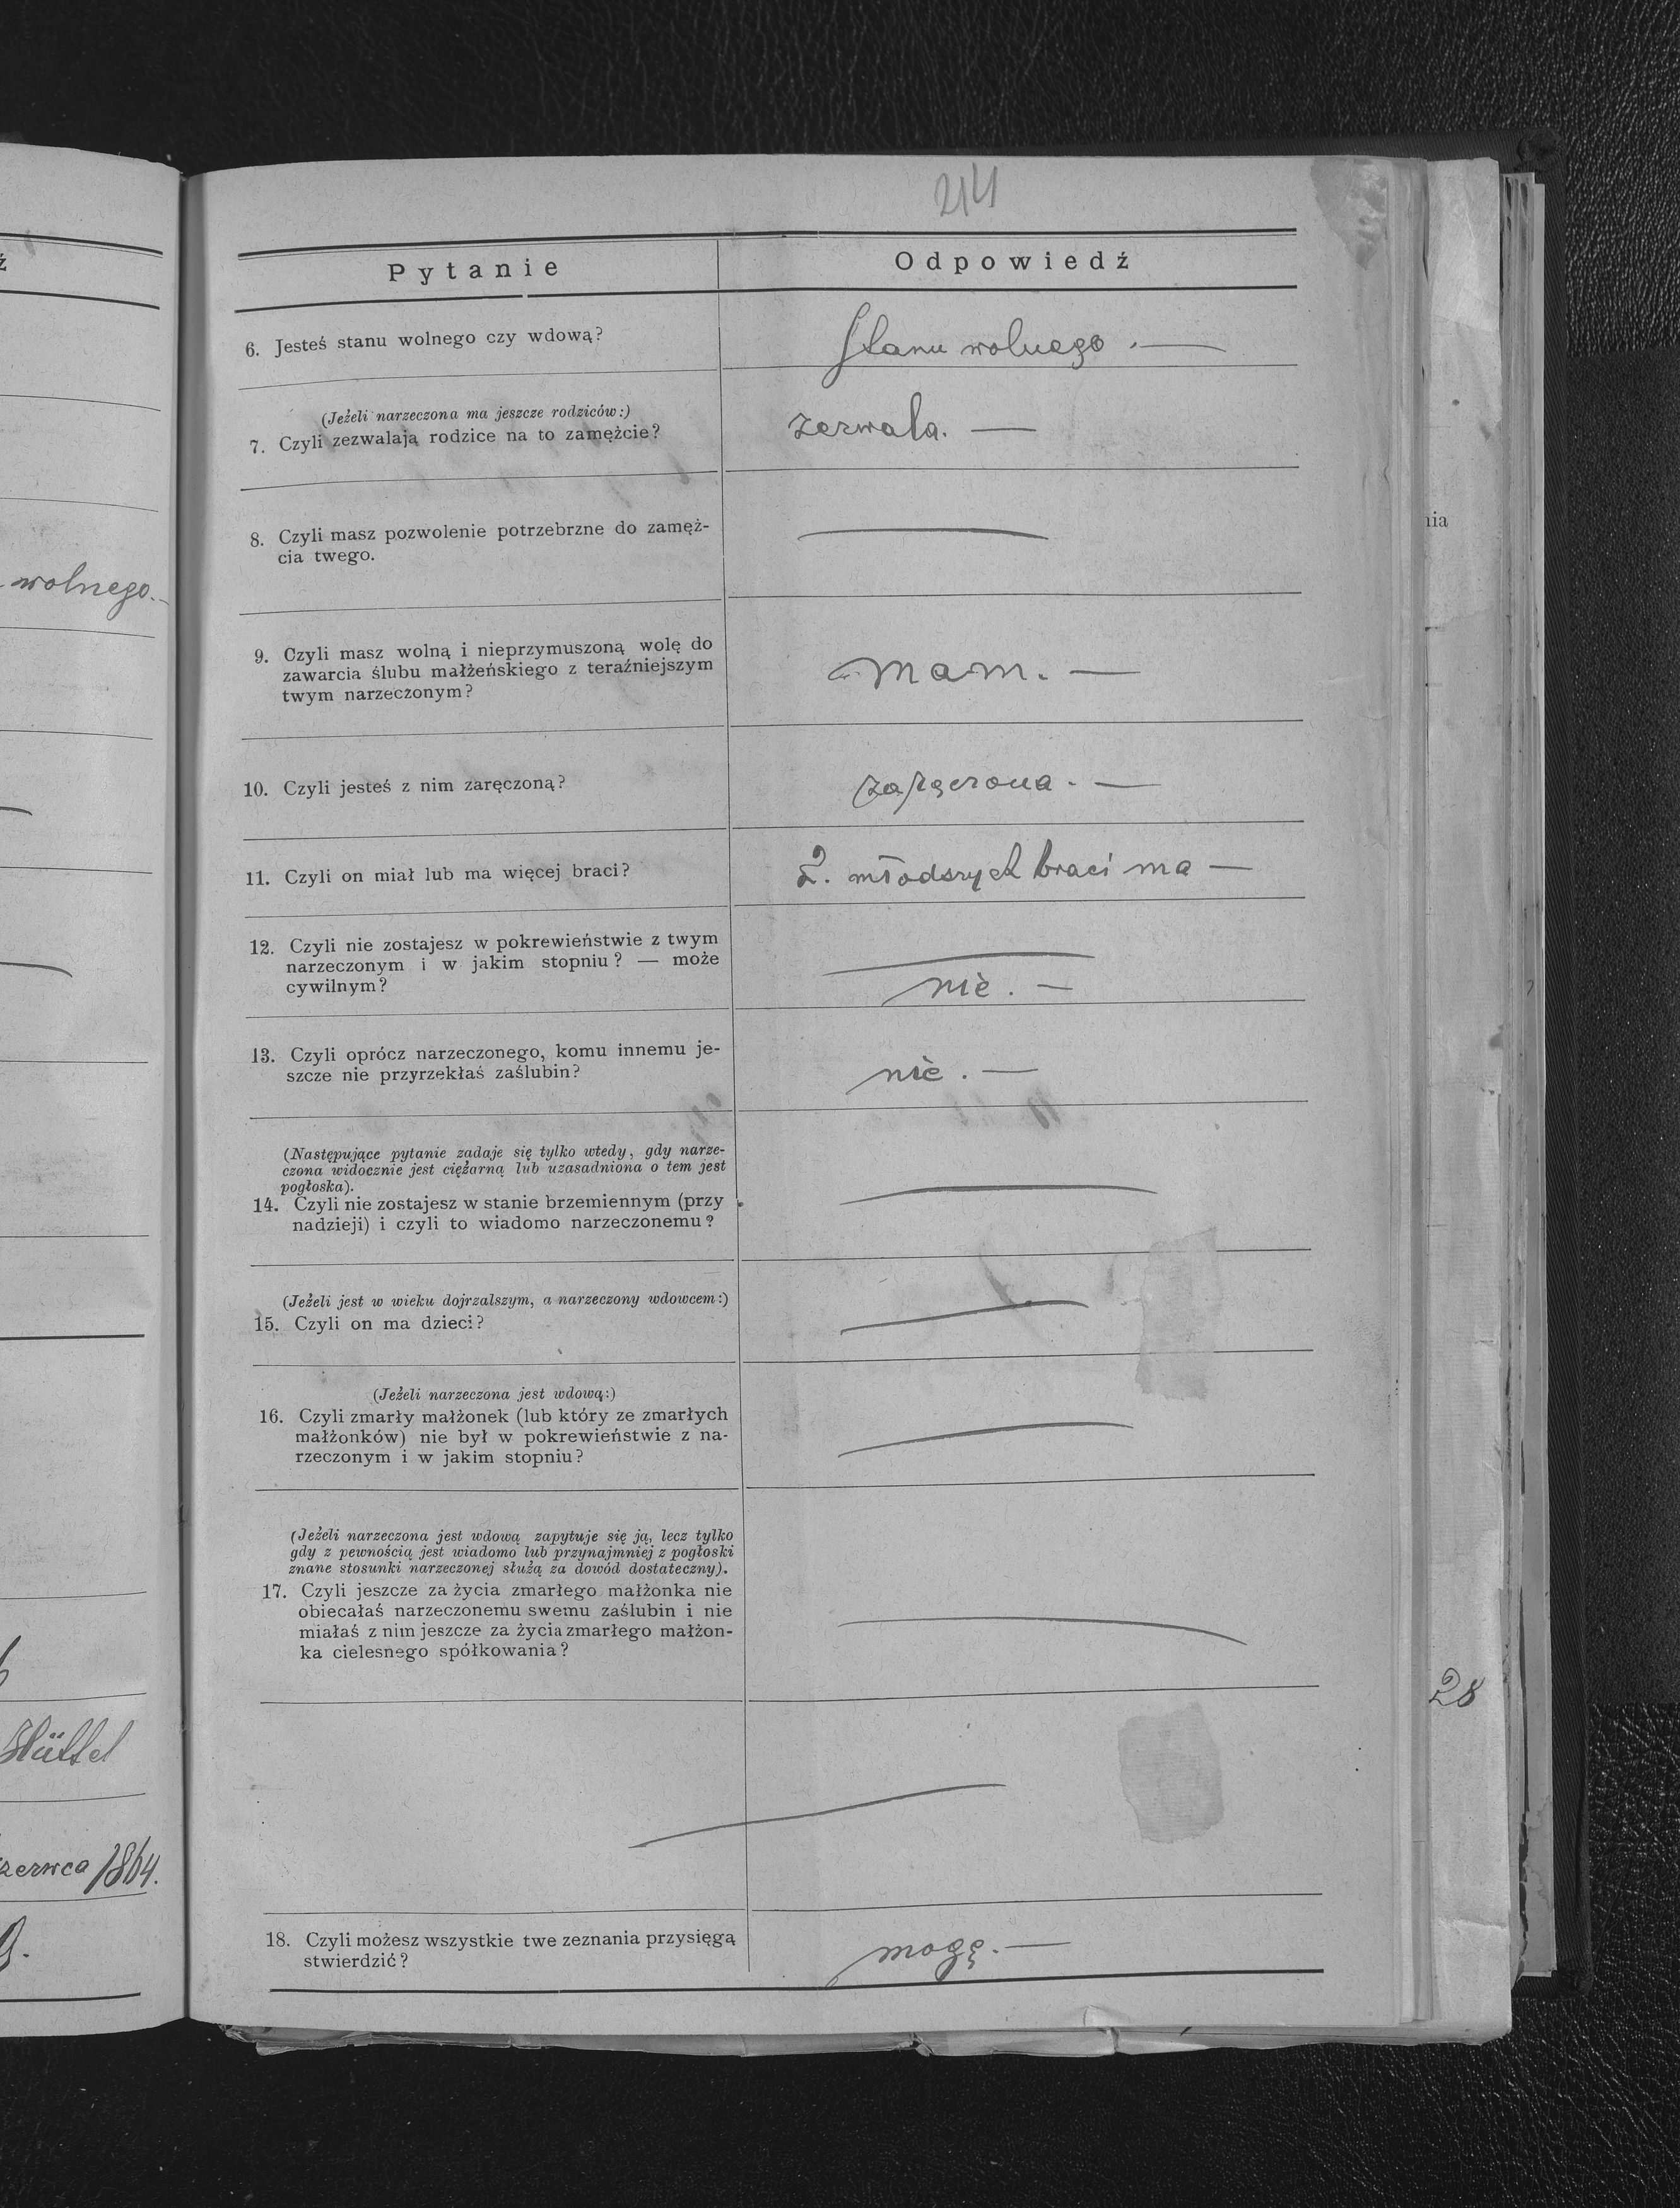 214
Pytanie
Odpowiedź
6. Jesteś stanu wolnego czy wdową?
Stanu wolnego. —
(Jeżeli narzeczona ma jeszcze rodziców:)
7. Czyli zezwalają rodzice na to zamężcie?
zezwala. —
8. Czyli masz pozwolenie potrzebrzne do zamęż-
cia twego.
9. Czyli masz wolną i nieprzymuszoną wolę do
zawarcia ślubu małżeńskiego z teraźniejszym
twym narzeczonym?
mam. —
10. Czyli jesteś z nim zaręczoną?
zaręczona. —
11. Czyli on miał lub ma więcej braci?
2. młodszych braci ma —
12. Czyli nie zostajesz w pokrewieństwie z twym
narzeczonym i w jakim stopniu? — może
cywilnym?
nie. —
13. Czyli oprócz narzeczonego, komu innemu je-
szcze nie przyrzekłaś zaślubin?
nie. —
(Następujące pytanie zadaje się tylko wtedy, gdy narze-
czona widocznie jest ciężarną lub uzasadniona o tem jest
pogłoska).
14. Czyli nie zostajesz w stanie brzemiennym (przy
nadzieji) i czyli to wiadomo narzeczonemu?
(Jeżeli jest w wieku dojrzalszym, a narzeczony wdowcem:)
15. Czyli on ma dzieci?
(Jeżeli narzeczona jest wdową:)
16. Czyli zmarły małżonek (lub który ze zmarłych
małżonków) nie był w pokrewieństwie z na-
rzeczonym i w jakim stopniu?
(Jeżeli narzeczona jest wdową zapytuje się ją, lecz tylko
gdy z pewnością jest wiadomo lub przynajmniej z pogłoski
znane stosunki narzeczonej służą za dowód dostateczny).
17. Czyli jeszcze za życia zmarłego małżonka nie
obiecałaś narzeczonemu swemu zaślubin i nie
miałaś z nim jeszcze za życia zmarłego małżon-
ka cielesnego spółkowania?
18. Czyli możesz wszystkie twe zeznania przysięgą
stwierdzić?
mogę. —
wolnego. —
zerwca 1864.
nia
28